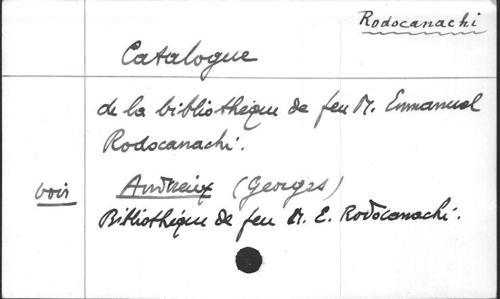 Rodocanachi
Catalogue
de la bibliothèque de feu M. Emmanuel
Rodocanachi.
voir Andrieux (Georges)
Bibliothèque de feu M. E. Rodocanachi.